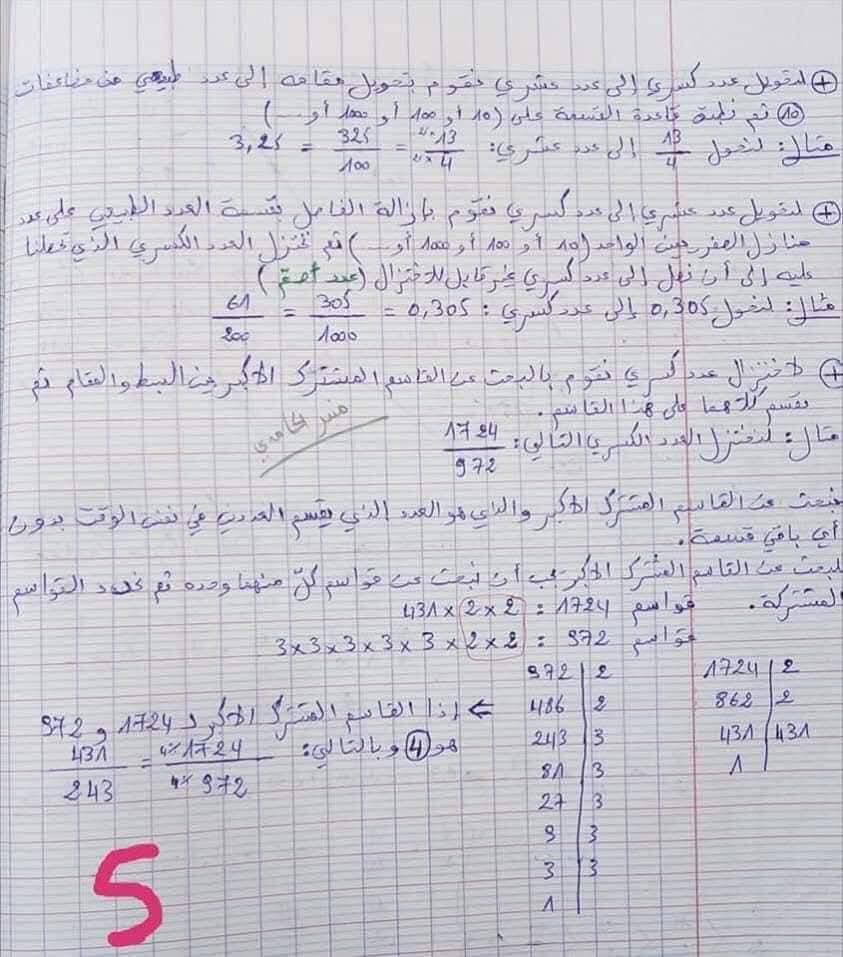 ⊕ لتحويل عدد كسري إلى عدد عشري نقوم بتحويل مقامه إلى عدد طبيعي من مضاعفات
⑩ ثم نطبق قاعدة القسمة على (10 أو 100 أو 1000 أو ....)
مثال: لنحول 13/4 إلى عدد عشري: 13/4 = 325/100 = 3,25
⊕ لتحويل عدد عشري إلى عدد كسري نقوم بإزالة الفاصل بقسمة العدد الطبيعي على عدد
منازل الصفر بيمين الواحد (10 أو 100 أو 1000 أو ....) ثم نختزل العدد الكسري الذي تحصلنا
عليه إلى أن نصل إلى عدد كسري غير قابل للاختزال (عدد أصم)
مثال: لنحول 0,305 إلى عدد كسري: 0,305 = 305/1000 = 61/200
⊕ لاختزال عدد كسري نقوم بالبحث عن القاسم المشترك الأكبر بين البسط والمقام ثم
نقسم كلاهما على هذا القاسم.
مثال: لنختزل العدد الكسري التالي: 1724/972
نبحث عن القاسم المشترك الأكبر والذي هو العدد الذي يقسم العددين في نفس الوقت بدون
أي باقي قسمة.
للبحث عن القاسم المشترك الأكبر يجب أن نبحث عن قواسم كلّ منهما وحده ثم نحدد القواسم
المشتركة. قواسم 1724 = 2 × 2 × 431
قواسم 972 = 2 × 2 × 3 × 3 × 3 × 3 × 3
1724 | 2
862 | 2
431 | 431
1
972 | 2
486 | 2
243 | 3
81 | 3
27 | 3
9 | 3
3 | 3
1
⇐ إذا القاسم المشترك الأكبر لـ 1724 و 972
هو ④ وبالتالي: 1724/972 = 431/243
5